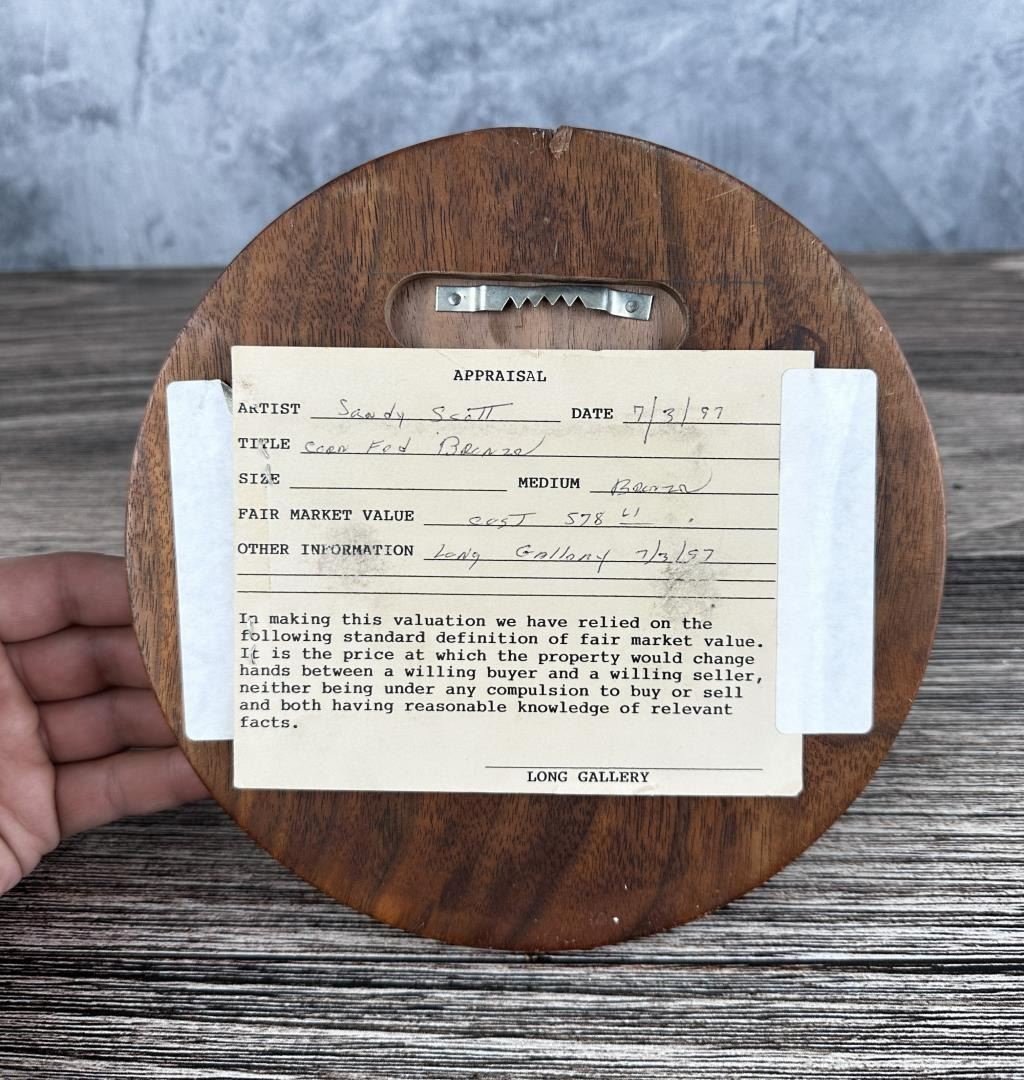 APPRAISAL
ARTIST Sandy Scott DATE 7/3/97
TITLE Corn Fed Bronze
SIZE MEDIUM Bronze
FAIR MARKET VALUE cost 578
OTHER INFORMATION Long Gallery 7/3/97
In making this valuation we have relied on the
following standard definition of fair market value.
It is the price at which the property would change
hands between a willing buyer and a willing seller,
neither being under any compulsion to buy or sell
and both having reasonable knowledge of relevant
facts.
LONG GALLERY